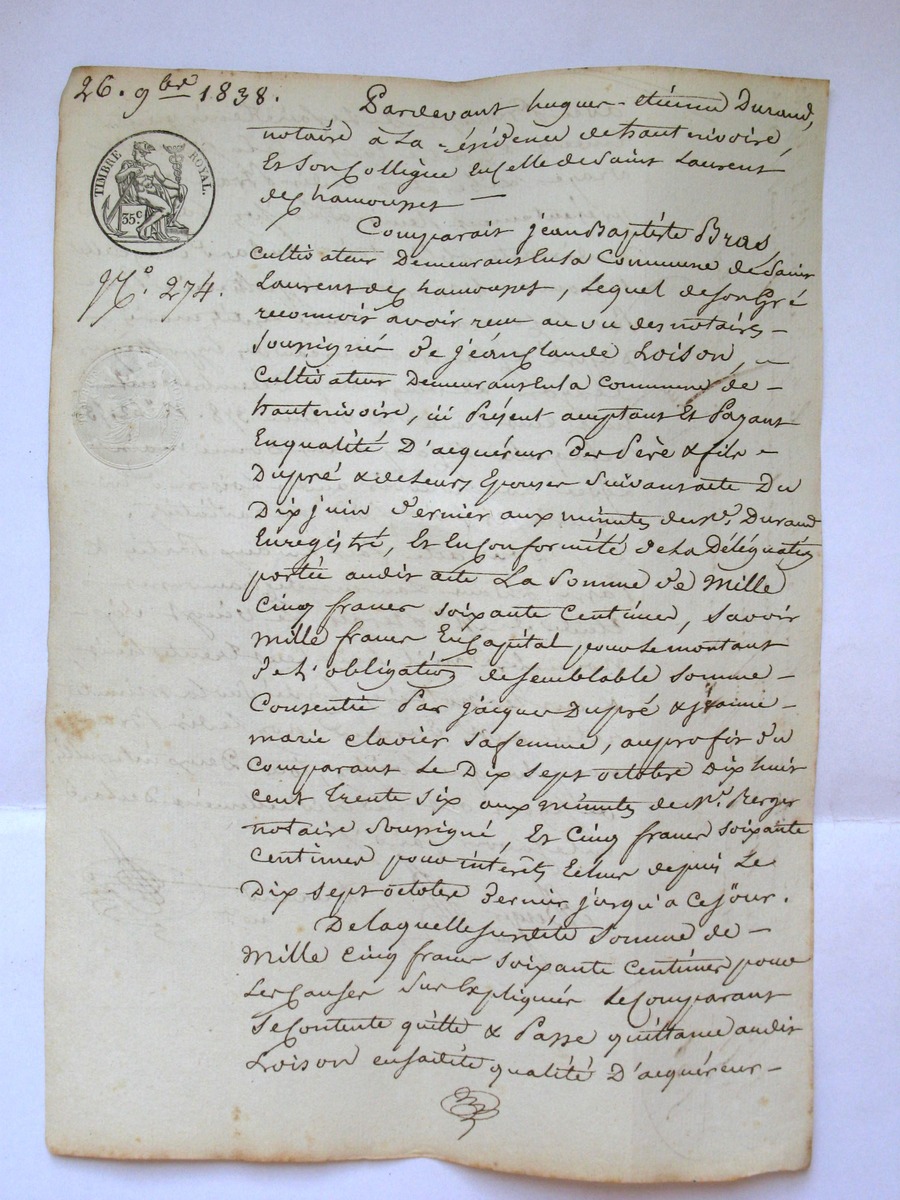 26. 9bre 1838.
TIMBRE ROYAL.
35.c
No. 274.
Pardevant hugues-étienne Durand,
notaire à La résidence de hauterivoire,
Et Son Collègue En celle de Saint Laurent
de Chamousset —
Comparait jean Baptiste Bras,
cultivateur Demeurant En la Commune de Saint
Laurent de Chamousset, Lequel de Son Gré
reconnoit avoir recu au vu des notaires
Soussignés de jean Claude Loison,
Cultivateur Demeurant En la Commune de
hauterivoire, ici Présent acceptant Et Payant
En qualité D'acquéreur Des Père & fils
Dupré & de Leurs Epouses Suivant acte Du
Dix juin dernier aux minutes de Me. Durand
Enregistré, Et En Conformité de La Délégation
portée audit acte La Somme de Mille
cinq francs soixante centimes, savoir
mille francs En Capital, pour Le montant
de L'obligation de semblable somme
Consentie Par jacques Dupré & jeanne
marie clavier Sa femme, au profit du
Comparant Le Dix Sept octobre Dix huit
cent trente Six aux minutes de Me. Berger
notaire Soussigné, Et Cinq francs soixante
Centimes pour intérêts Echus depuis Le
Dix sept octobre dernier jusqu'à ce jour.
De laquelle susdite Somme de
Mille cinq francs soixante centimes pour
Les Causes Sus Expliquées Le Comparant
Se Contente quitte & Passe quittance audit
Loison en sadite qualité D'acquéreur